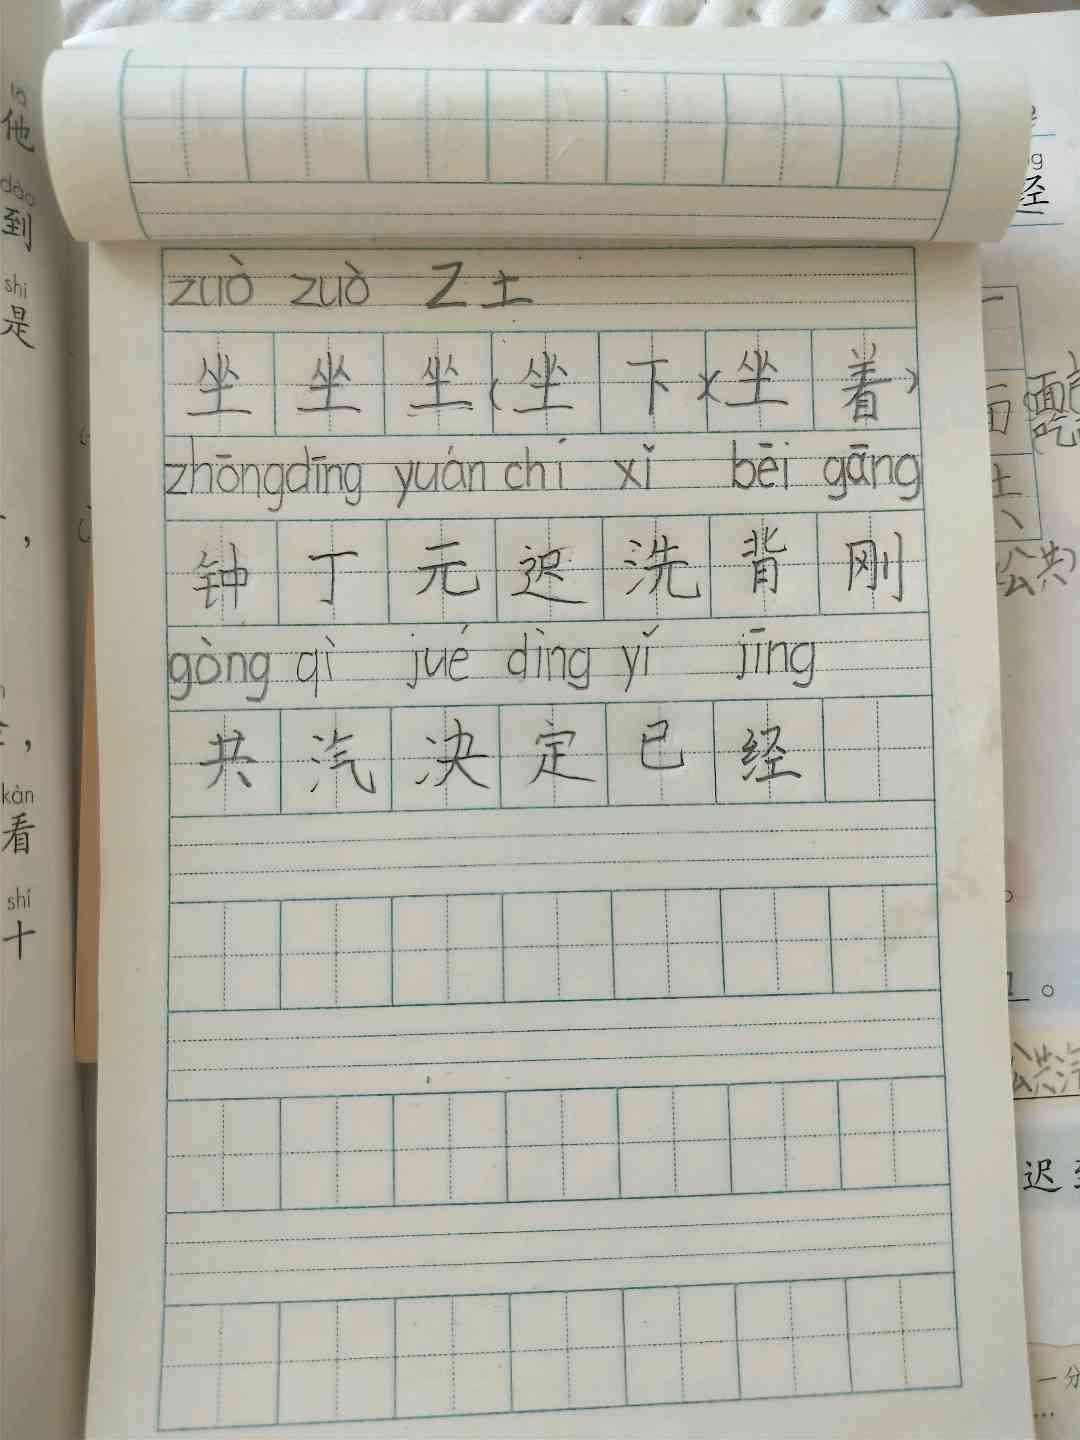 zuò zuò Z 土
坐 坐 坐 (坐 下)(坐 着)
zhōng dīng yuán chí xǐ bēi gāng
钟 丁 元 迟 洗 背 刚
gòng qì jué dìng yǐ jīng
共 汽 决 定 已 经
他
dào
到
shì
是
,
,
kàn
看
shí
十
经
公共
。
。
公共汽
迟
一分